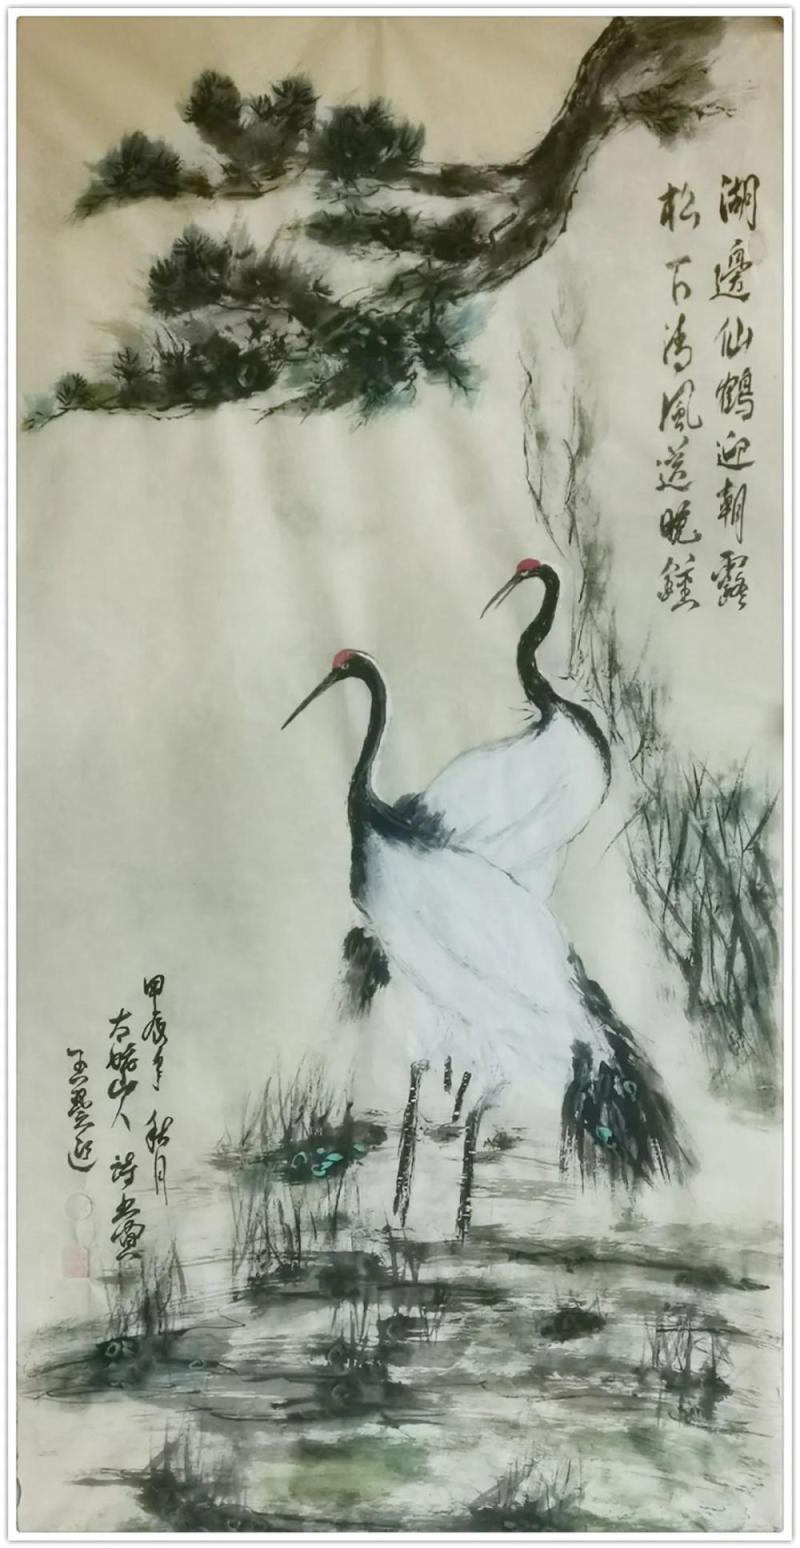 湖邊仙鶴迎朝露
松下清風送晚鐘
甲辰年 秋月
山人 詩書畫